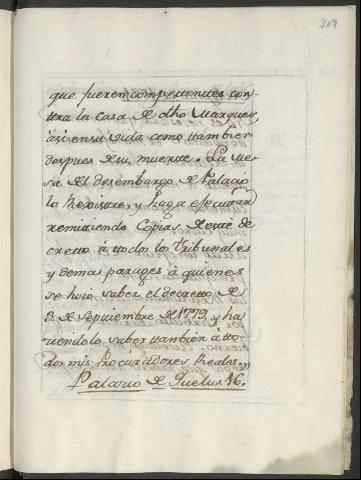 309
que fueren competentes con-
ttra la Casa de dho Marques,
asi en su vida como ttambien
despues de su muertte. La Me-
sa del desembargo de Palacio
lo Rexistre, y haga executtar
remittiendo Copias de este de-
cretto à ttodos los Tribunales
y demas parages à quienes
se hizo saber el decretto de
3. de Septiembre de 1779. y ha-
ciendolo saber ttambien à tto-
dos mis Procuradores Reales.
Palacio de Quelus 16.